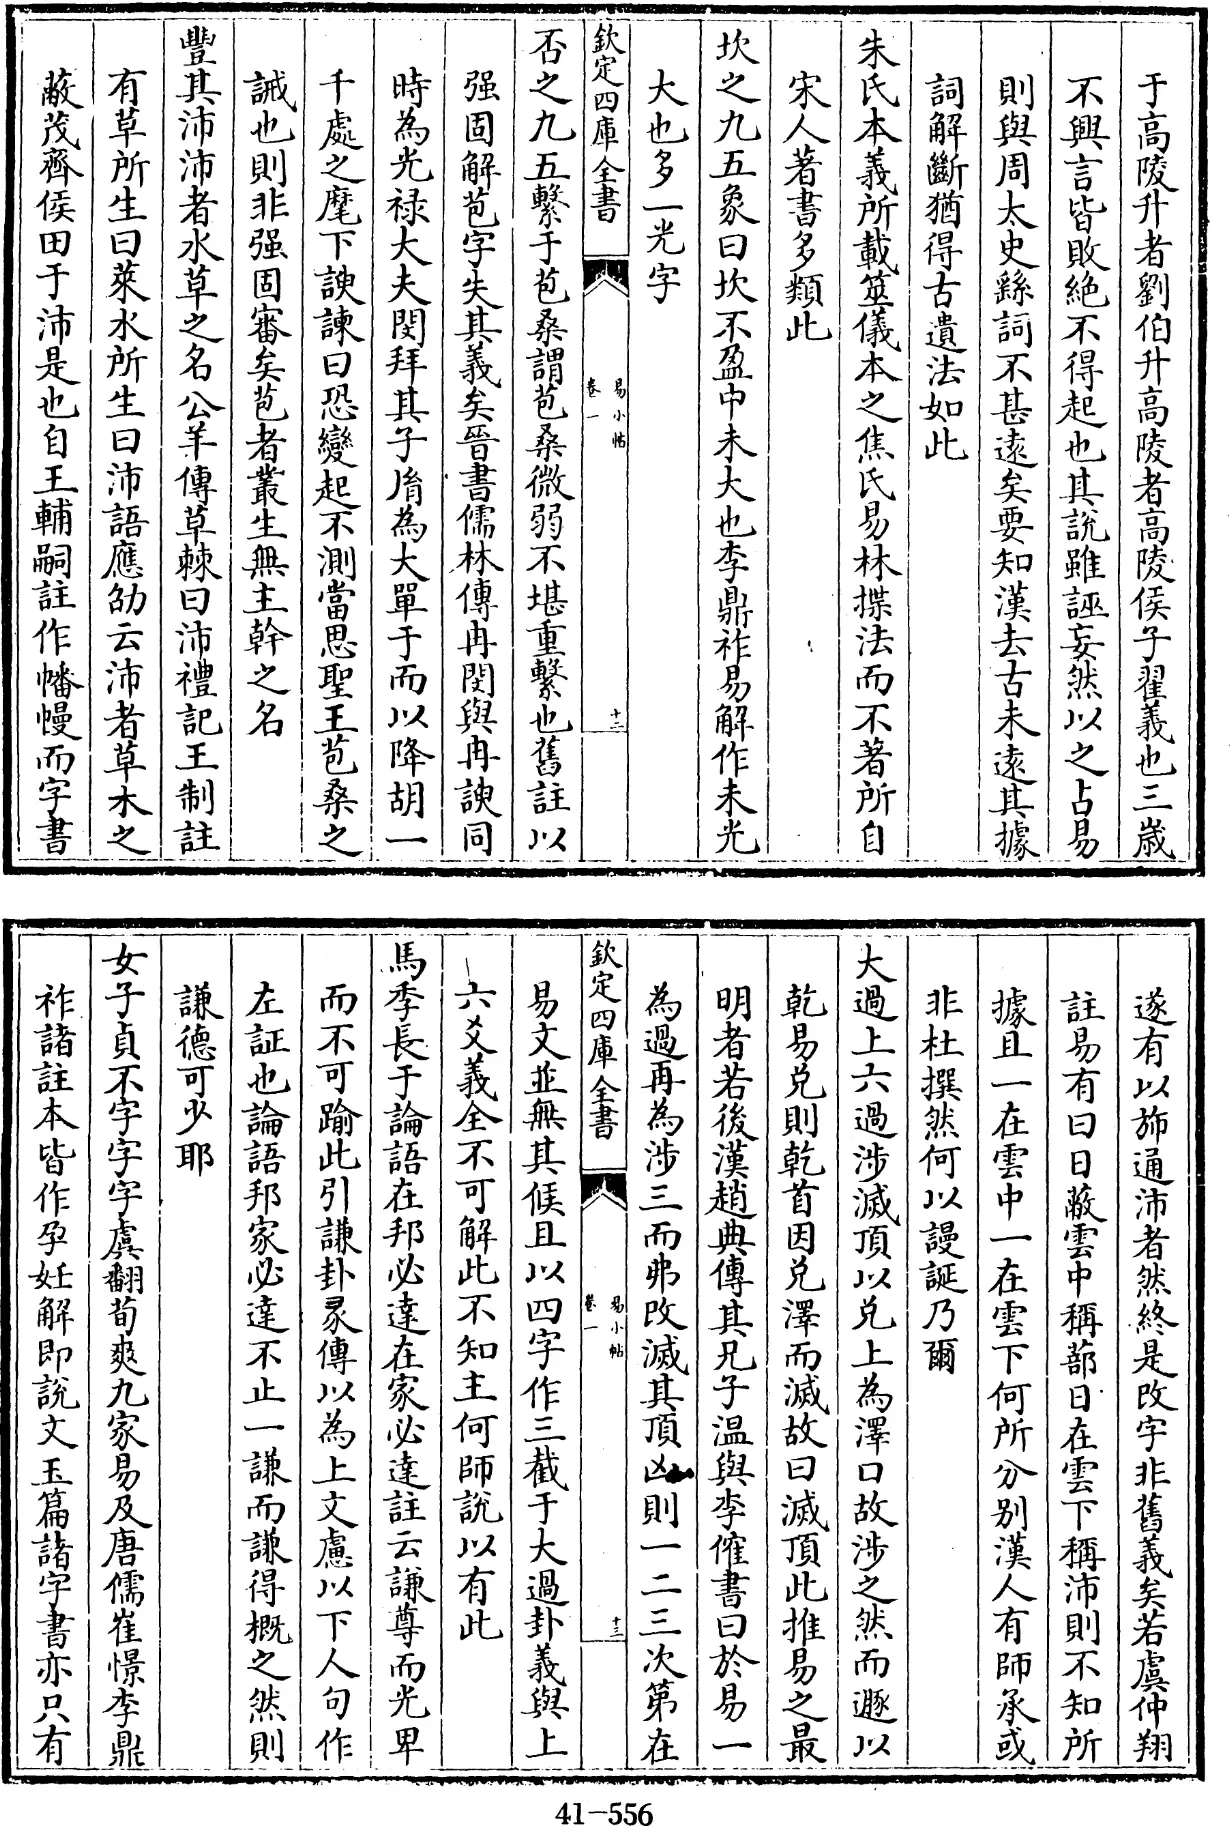 于高陵升者劉伯升高陵者高陵侯子翟義也三歳
不興言皆敗絶不得起也其説雖誣妄然以之占易
則與周太史繇詞不甚遠矣要知漢去古未遠其據
詞解斷猶得古遺法如此
朱氏本義所載筮儀本之焦氏易林揲法而不著所自
宋人著書多類此
坎之九五象曰坎不盈中未大也李鼎祚易解作未光
大也多一光字
欽定四庫全書
易小帖
卷一
十二
否之九五繫于苞桑謂苞桑微弱不堪重繫也舊註以
强固解苞字失其義矣晉書儒林傳冉閔與冉諛同
時為光禄大夫閔拜其子𦙍為大單于而以降胡一
千處之麾下諛諫曰恐變起不測當思聖王苞桑之
誡也則非强固審矣苞者叢生無主幹之名
豐其沛沛者水草之名公羊傳草棘曰沛禮記王制註
有草所生曰萊水所生曰沛語應劭云沛者草木之
蔽茂齊侯田于沛是也自王輔嗣註作幡幔而字書
遂有以斾通沛者然終是改字非舊義矣若虞仲翔
註易有曰日蔽雲中稱蔀日在雲下稱沛則不知所
據且一在雲中一在雲下何所分别漢人有師承或
非杜撰然何以謾誕乃爾
大過上六過涉滅頂以兑上為澤口故涉之然而遯以
乾易兑則乾首因兑澤而滅故曰滅頂此推易之最
明者若後漢趙典傳其兄子温與李傕書曰於易一
為過再為涉三而弗改滅其頂凶則一二三次第在
欽定四庫全書
易小帖
卷一
十三
易文並無其候且以四字作三截于大過卦義與上
六爻義全不可解此不知主何師説以有此
馬季長于論語在邦必達在家必達註云謙尊而光卑
而不可踰此引謙卦彖傳以為上文慮以下人句作
左証也論語邦家必達不止一謙而謙得概之然則
謙德可少耶
女子貞不字字字虞翻荀爽九家易及唐儒崔憬李鼎
祚諸註本皆作孕妊解即説文玉篇諸字書亦只有
41-556